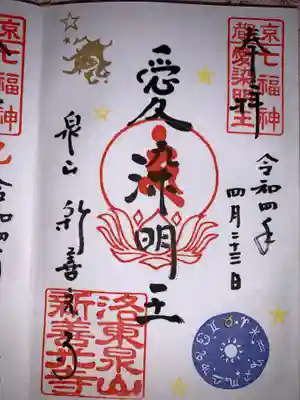 奉拝
京七福神
蔵愛染明王
令和四年
四月二十三日
愛染明王
泉山 新善光寺
洛東泉山
新善光寺
京七福神